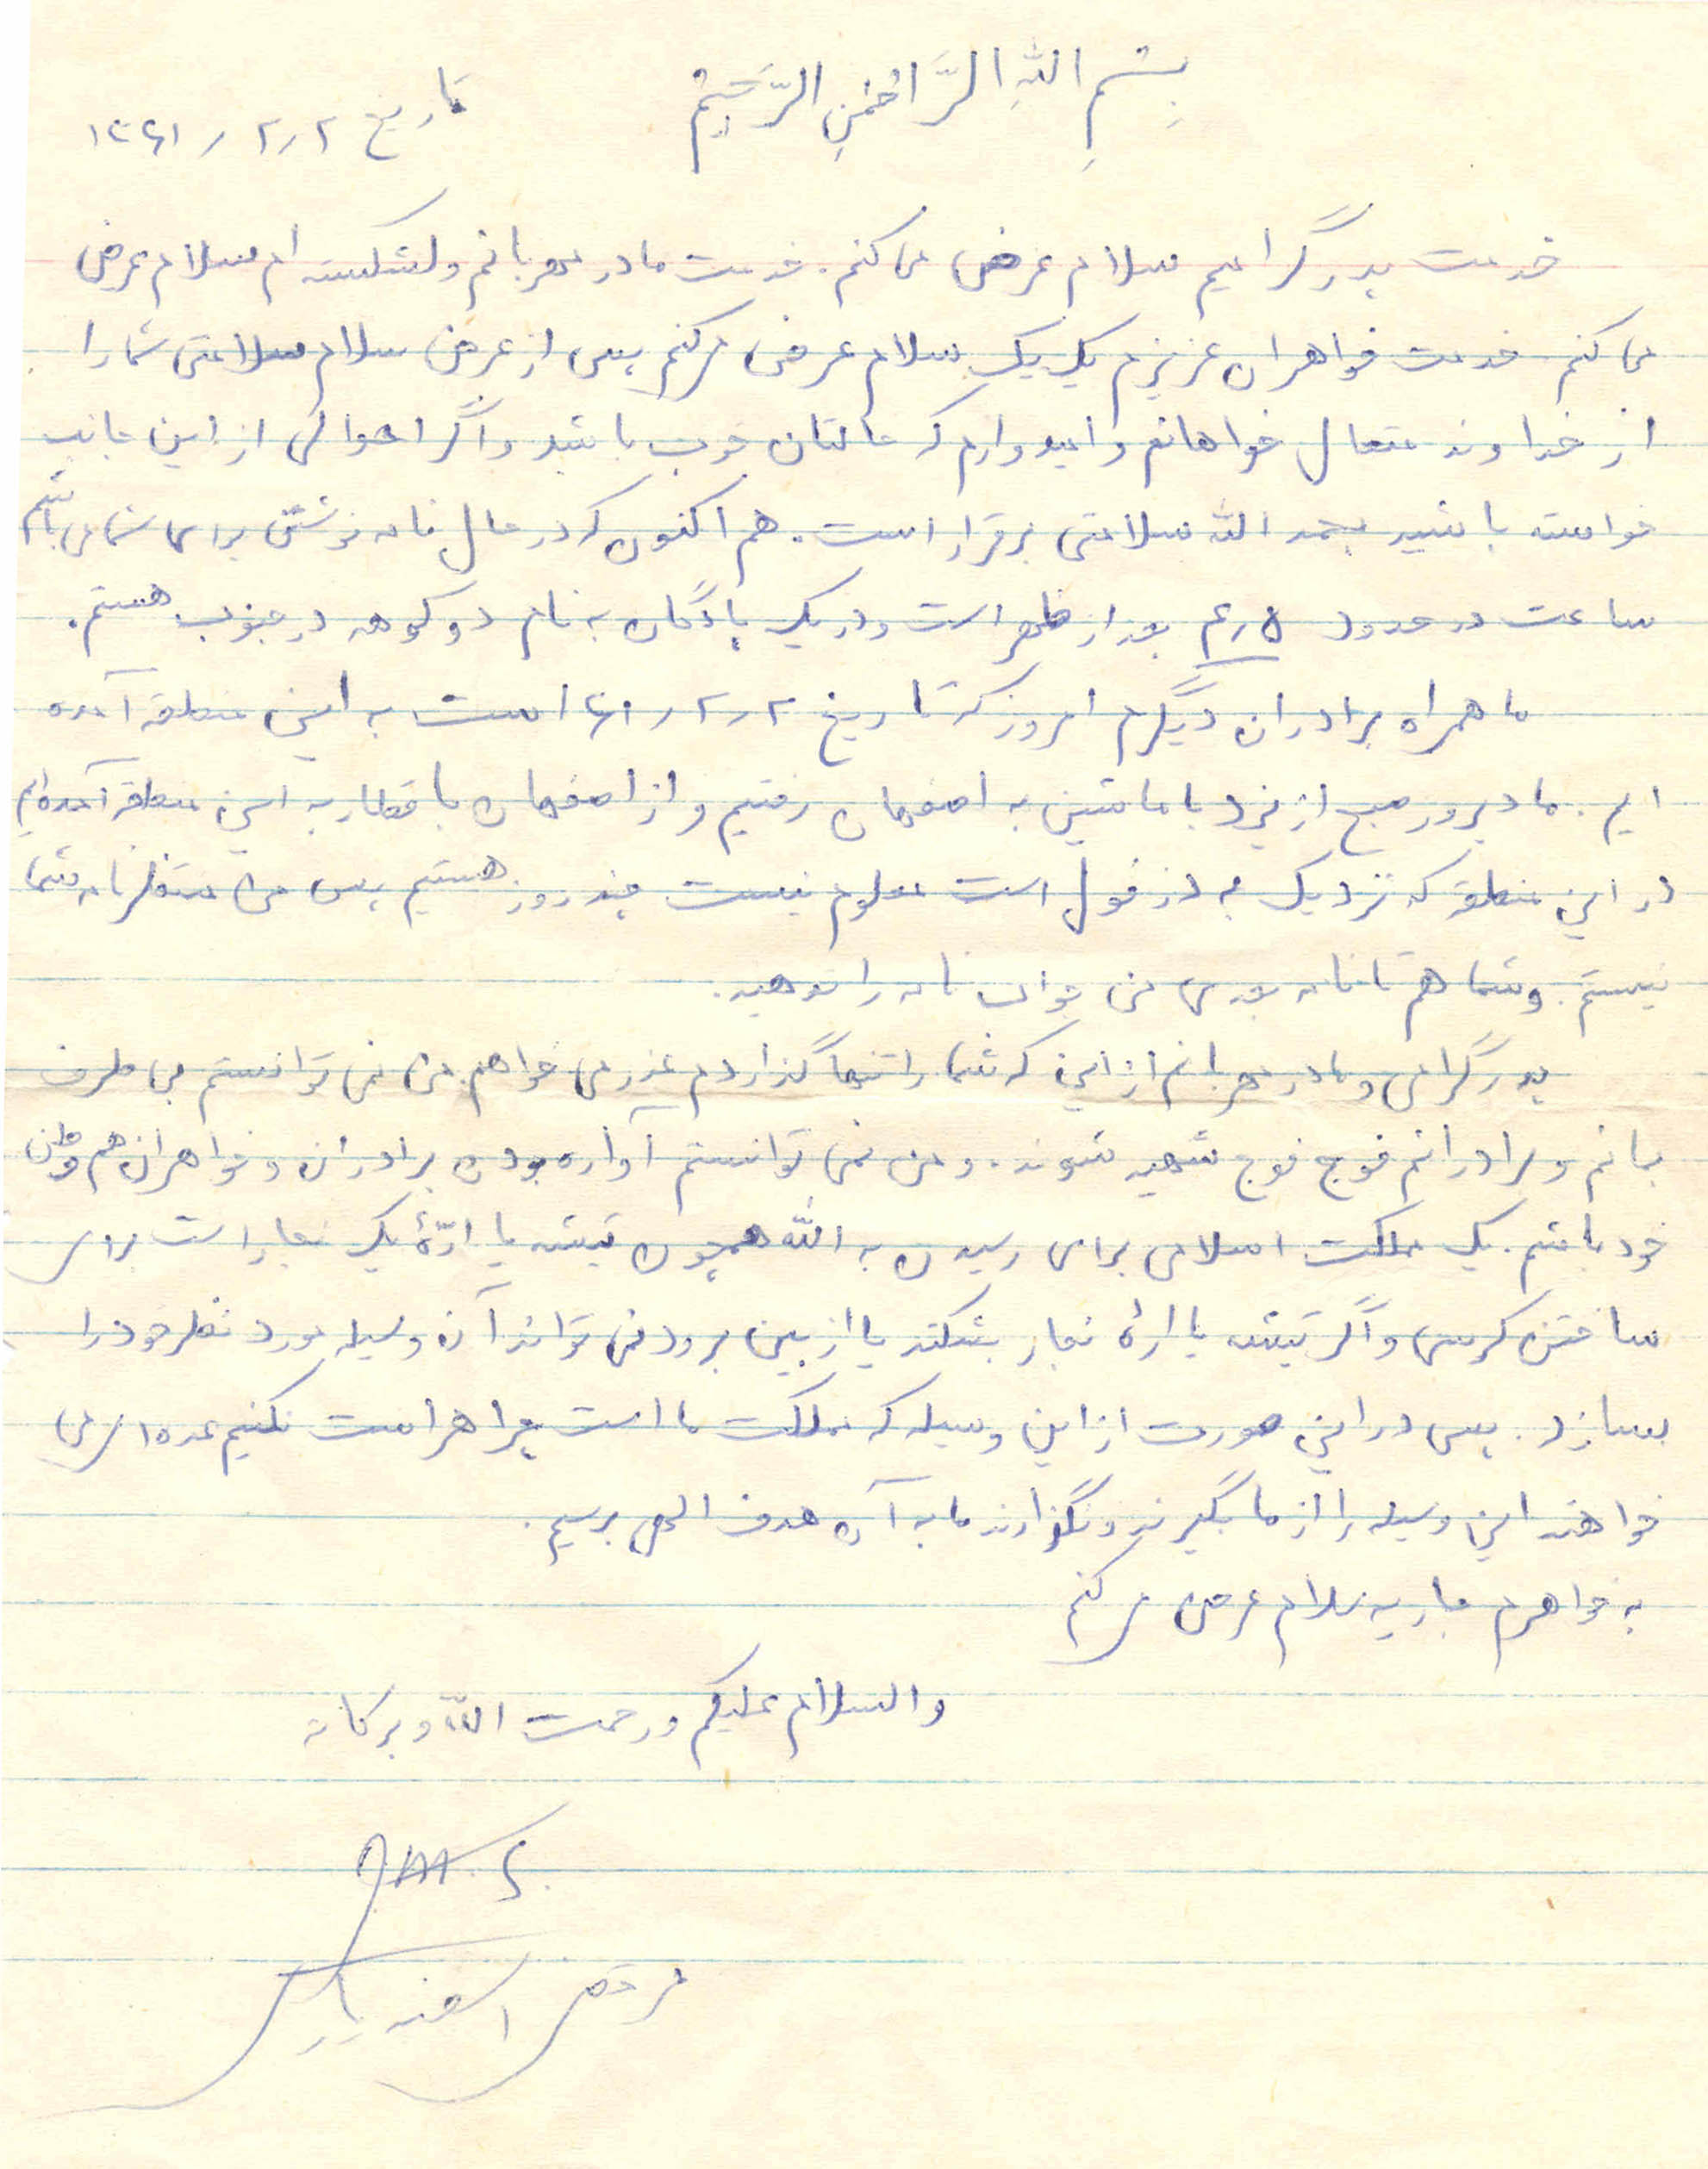 بِسْمِ اللهِ الرَّحْمٰنِ الرَّحیمْ
تاریخ ۲ / ۲ / ۱۳۶۱
خدمت پدر گرامیم سلام عرض می کنم. خدمت مادر مهربانم ولشکسته ام سلام عرض
می کنم خدمت خواهران عزیزم یک یک سلام عرض می کنم پس از عرض سلام سلامتی شما را
از خداوند متعال خواهانم و امیدوارم که حالتان خوب باشد و اگر احوالی از این جانب
خواسته باشید بحمد الله سلامتی برقرار است. هم اکنون که در حال نامه نوشتن برای شما می باشم
ساعت در حدود ۴٫۵ بعد از ظهر است و در یک پادگان به نام دوکوهه در جنوب هستم.
ما همراه برادران دیگرم امروز که تاریخ ۲ / ۲ / ۶۱ است به این منطقه آمده
ایم. ما دیروز صبح از یزد با ماشین به اصفهان رفتیم و از اصفهان با قطار به این منطقه آمده ایم
در این منطقه که نزدیک به دزفول است معلوم نیست چند روز هستیم پس من منتظر نامه شما
نیستم. و شما هم تا نامه بعدی من جواب نامه را ندهید.
پدر گرامی و مادر مهربانم از این که شما را تنها گذاردم عذر می خواهم. من نمی توانستم بی طرف
بمانم و برادرانم فوج فوج شهید شوند. و من نمی توانستم آواره بودن برادران و خواهران هم وطن
خود باشم. یک مملکت اسلامی برای رسیدن به الله همچون تیشه یا ارّهٔ یک نجار است برای
ساختن کرسی و اگر تیشه یا ارهٔ نجار بشکند یا از بین برود نمی تواند آن وسیله مورد نظر خود را
بسازد. پس در این صورت از این وسیله که مملکت ما است چرا حراست نکنیم عده ای می
خواهند این وسیله را از ما بگیرند و نگذارند ما به آن هدف الهی برسیم.
به خواهرم ماریه سلام عرض می کنم
والسلام علیکم و رحمت الله و برکاته
مرتضی اسفندیاری